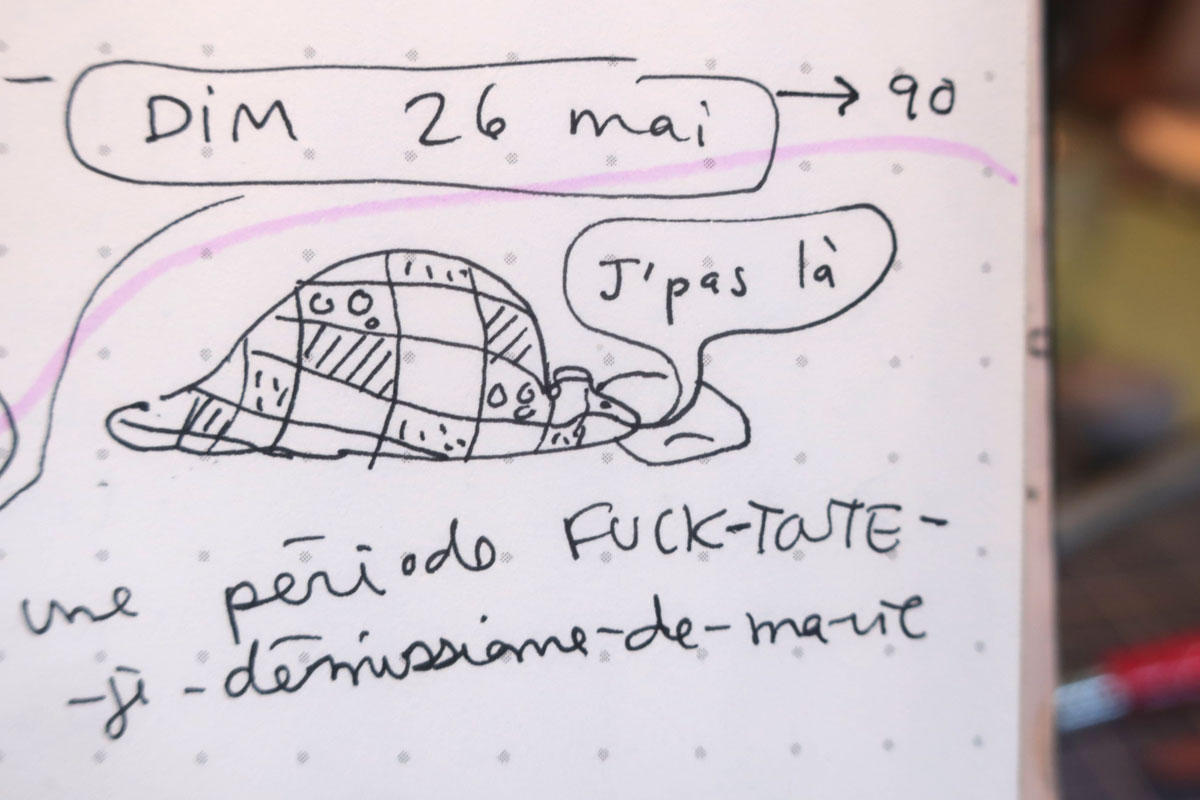 DiM 26 mai → 90
J'pas là
une période FUCK-TOUTE-
-je-démissionne-de-ma-vie